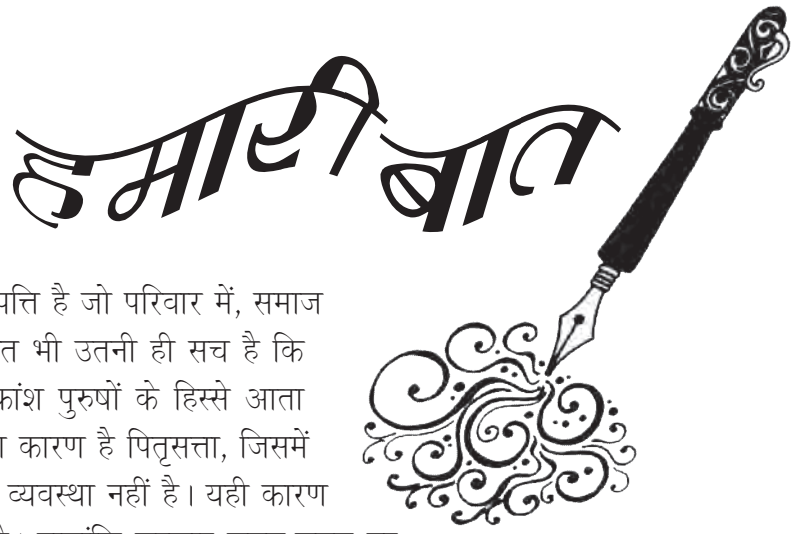 हमारी बात
है जो परिवार में, समाज
भी उतनी ही सच है कि
पुरुषों के हिस्से आता
कारण है पितृसत्ता, जिसमें
व्यवस्था नहीं है। यही कारण